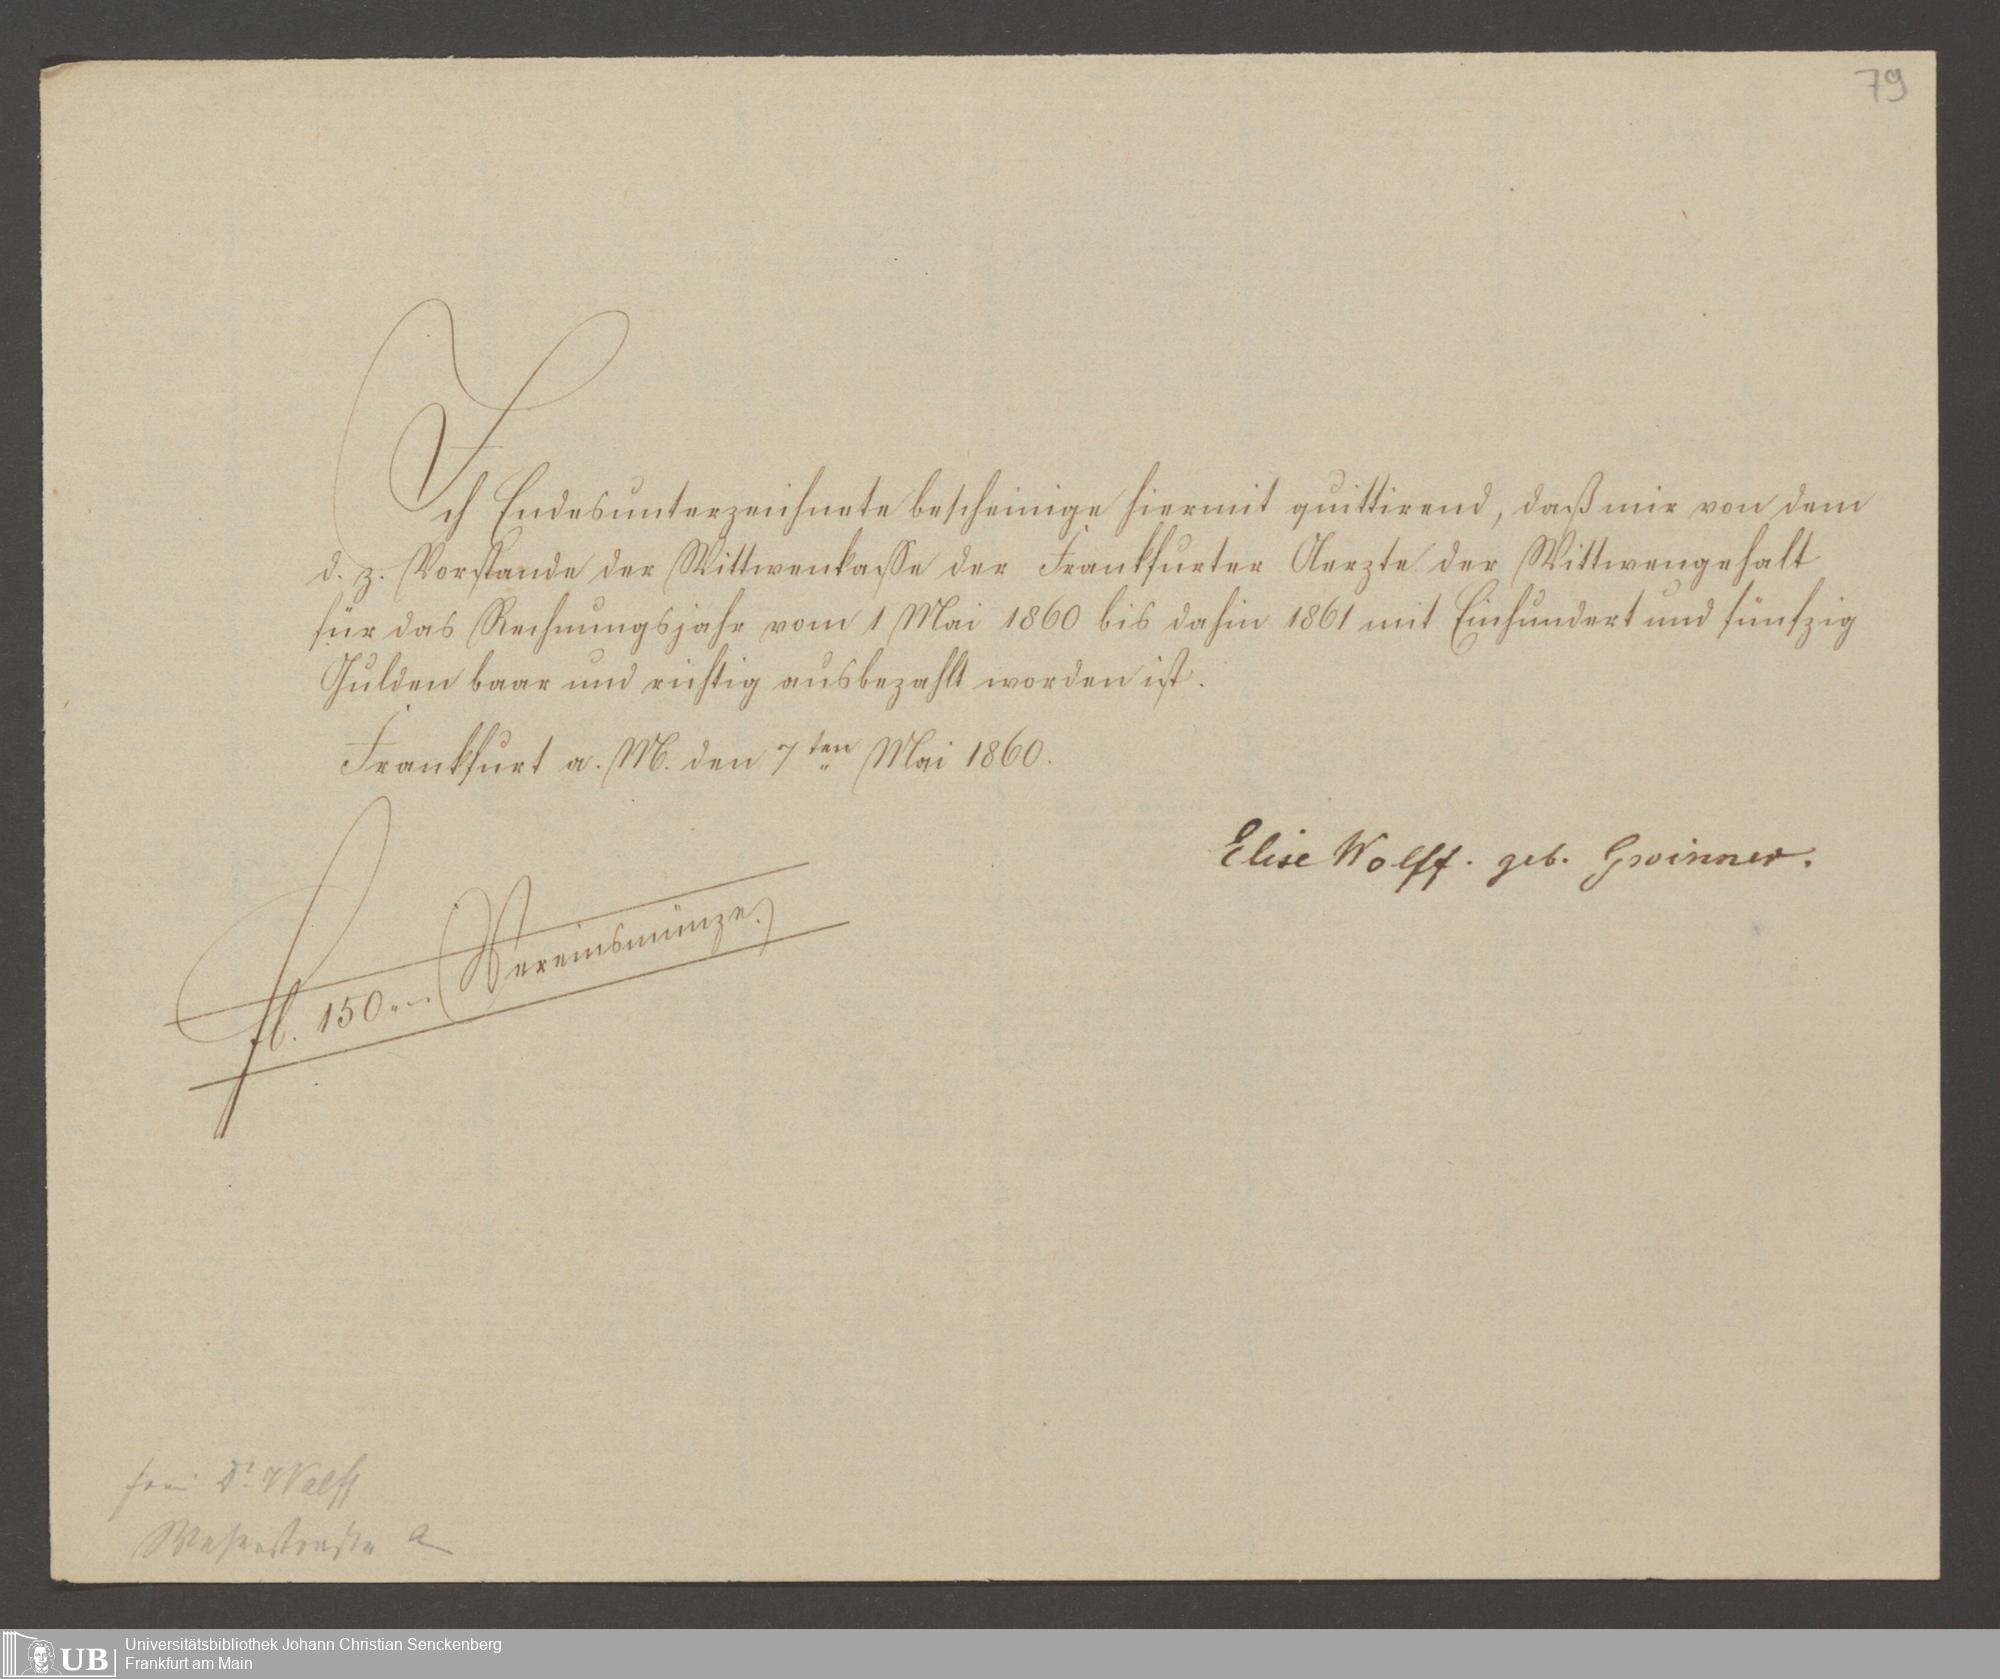 79
Ich Endesunterzeichnete bescheinige hiermit quittirend, daß mir von dem
d. z. Vorstande der Wittwenkasse der Frankfurter Aerzte der Wittwengehalt
für das Rechnungsjahr vom 1 Mai 1860 bis dahin 1861 mit Einhundert und fünfzig
Gulden baar und richtig ausbezahlt worden ist.
Frankfurt a. M. den 7ten Mai 1860.
Elise Wolff. geb. Gwinner.
fl. 150 „ – . (Vereinsmünze.)
Dr. Wolff
UB
Universitätsbibliothek Johann Christian Senckenberg
Frankfurt am Main